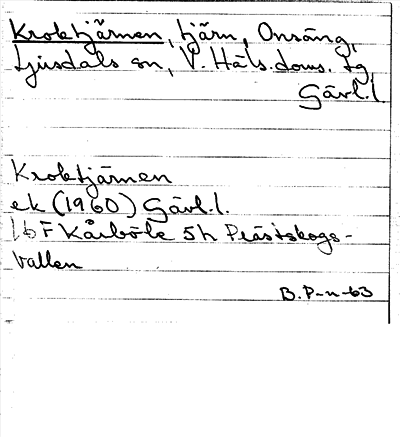 Kroktjärnen, tjärn, Onsäng,
Ljusdals sn, V. Häls. doms. tg
Gävl.l.
Kroktjärnen
ek (1960) Gävl.l.
16 F Kårböle 5h Prästskogs-
vallen
B. P-n -63